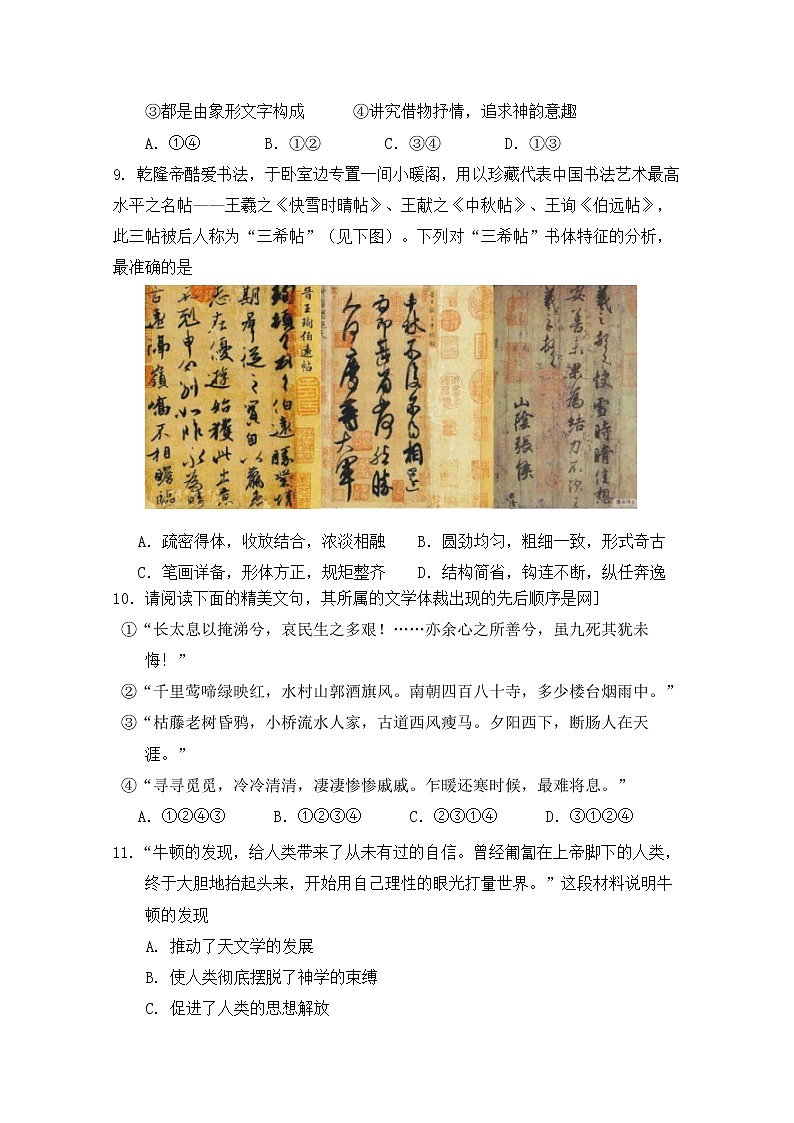 ③都是由象形文字构成 ④讲究借物抒情，追求神韵意趣
A．①④ B．①② C．③④ D．①③
9. 乾隆帝酷爱书法，于卧室边专置一间小暖阁，用以珍藏代表中国书法艺术最高
水平之名帖——王羲之《快雪时晴帖》、王献之《中秋帖》、王询《伯远帖》，
此三帖被后人称为“三希帖”（见下图）。下列对“三希帖”书体特征的分析，
最准确的是
晋王珣伯远帖
中秋不复不得相还
为即甚省如何然胜
人何庆等大军
羲之顿首快雪时晴佳想
安善未果为结力不次王
羲之顿首
山陰張侯
A．疏密得体，收放结合，浓淡相融 B．圆劲均匀，粗细一致，形式奇古
C．笔画详备，形体方正，规矩整齐 D．结构简省，钩连不断，纵任奔逸
10．请阅读下面的精美文句，其所属的文学体裁出现的先后顺序是网]
①“长太息以掩涕兮，哀民生之多艰！……亦余心之所善兮，虽九死其犹未
悔！”
②“千里莺啼绿映红，水村山郭酒旗风。南朝四百八十寺，多少楼台烟雨中。”
③“枯藤老树昏鸦，小桥流水人家，古道西风瘦马。夕阳西下，断肠人在天
涯。”
④“寻寻觅觅，冷冷清清，凄凄惨惨戚戚。乍暖还寒时候，最难将息。”
A．①②④③ B．①②③④ C．②③①④ D．③①②④
11．“牛顿的发现，给人类带来了从未有过的自信。曾经匍匐在上帝脚下的人类，
终于大胆地抬起头来，开始用自己理性的眼光打量世界。”这段材料说明牛
顿的发现
A. 推动了天文学的发展
B. 使人类彻底摆脱了神学的束缚
C. 促进了人类的思想解放